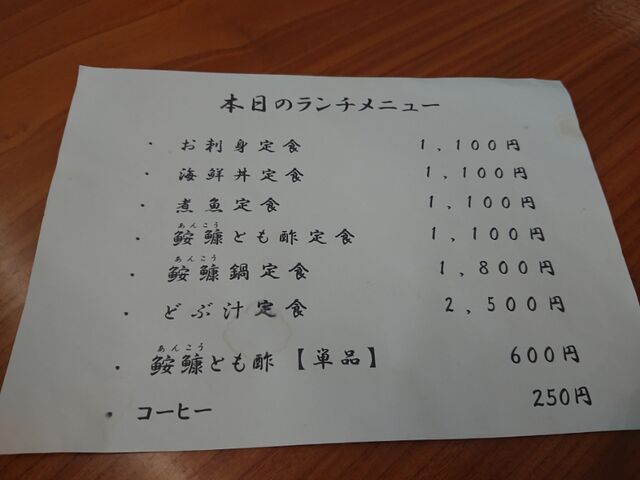 本日のランチメニュー
・お刺身定食 1,100円
・海鮮丼定食 1,100円
・煮魚定食 1,100円
あんこう
・鮟鱇とも酢定食 1,100円
あんこう
・鮟鱇鍋定食 1,800円
・どぶ汁定食 2,500円
あんこう
・鮟鱇とも酢【単品】 600円
・コーヒー 250円